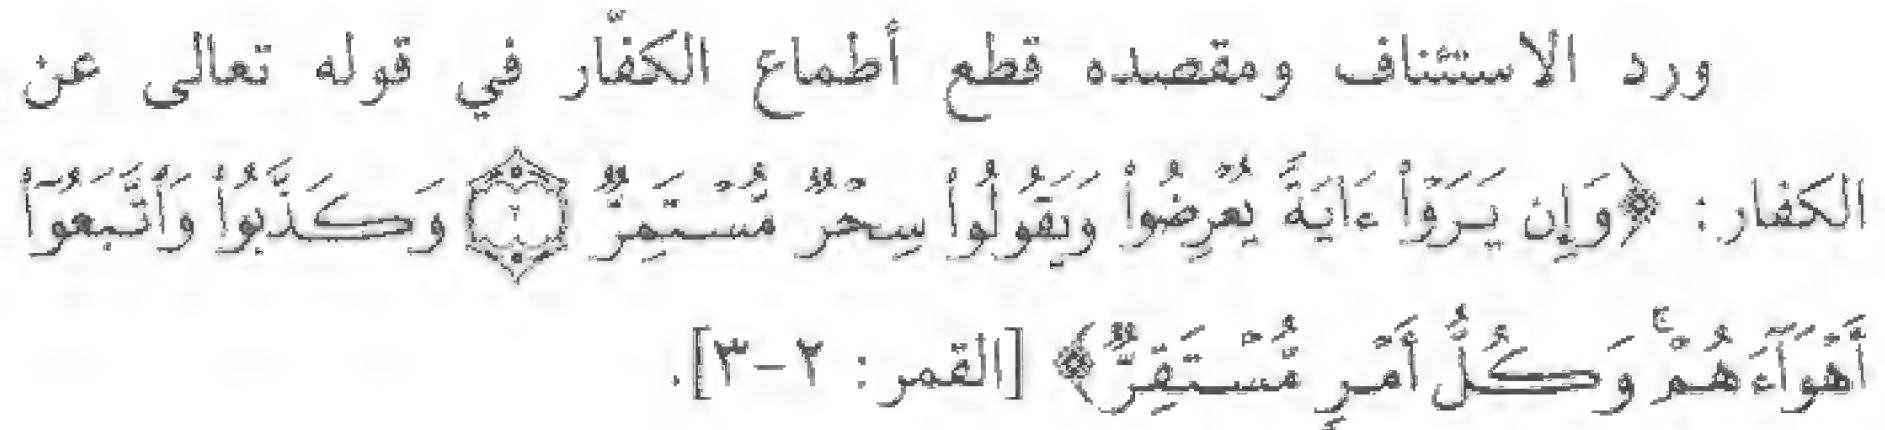 ورد الاستئناف ومقصده قطع أطماع الكفّار في قوله تعالى عن
الكفار: ﴿وَإِن يَرَوْا۟ ءَايَةً يُعْرِضُوا۟ وَيَقُولُوا۟ سِحْرٌ مُّسْتَمِرٌّ ۝٢ وَكَذَّبُوا۟ وَٱتَّبَعُوٓا۟
أَهْوَآءَهُمْ ۚ وَكُلُّ أَمْرٍ مُّسْتَقِرٌّ﴾ [القمر: ٢-٣].